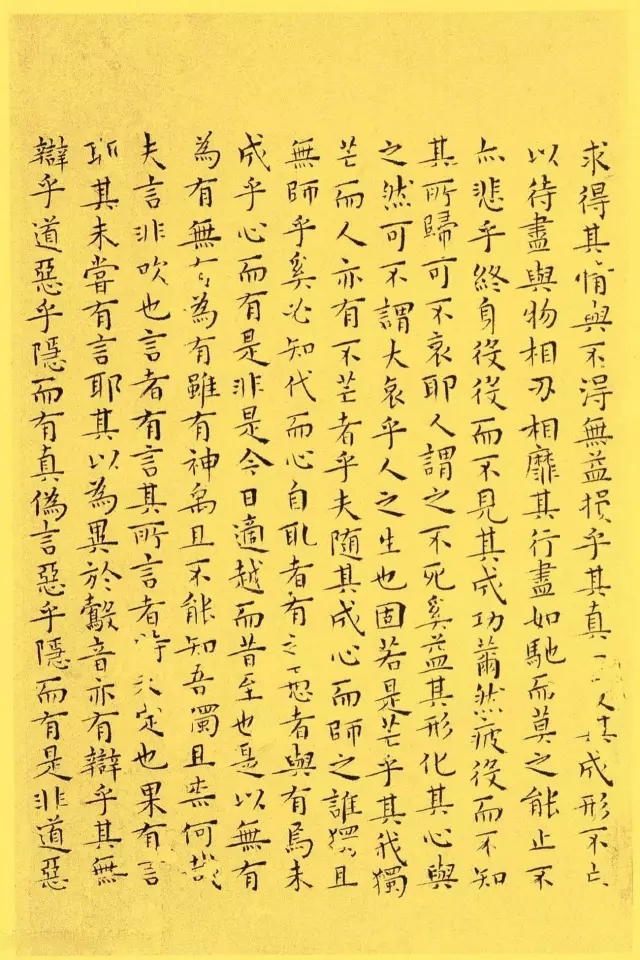 求得其情與不得無益損乎其真一其成形不亡
以待盡與物相刃相靡其行盡如馳而莫之能止不
亦悲乎終身役役而不見其成功薾然疲役而不知
其所歸可不哀耶人謂之不死奚益其形化其心與
之然可不謂大哀乎人之生也固若是芒乎其我獨
芒而人亦有不芒者乎夫隨其成心而師之誰獨且
無師乎奚必知代而心自取者有之愚者與有焉未
成乎心而有是非是今日適越而昔至也是以無有
為有無有為有雖有神禹且不能知吾獨且柰何哉
夫言非吹也言者有言其所言者特未定也果有言
耶其未嘗有言耶其以為異於鷇音亦有辯乎其無
辯乎道惡乎隱而有真偽言惡乎隱而有是非道惡